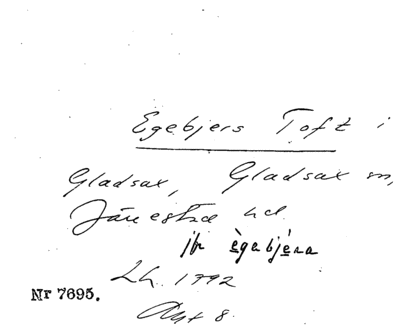 Egebjers Toft i
Gladsax, Gladsax sn,
Järrestad hd.
jfr ègabjéra
Lh. 1792
Nr 7695.
Akt 8